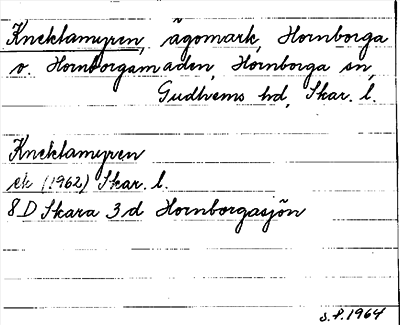 Knektamyren, ägomark, Hornborga
o. Hornborgamaden, Hornborga sn,
Gudhems hd, Skar. l.
Knektamyren
ek (1962) Skar. l.
8D Skara 3d Hornborgasjön
S.P. 1964